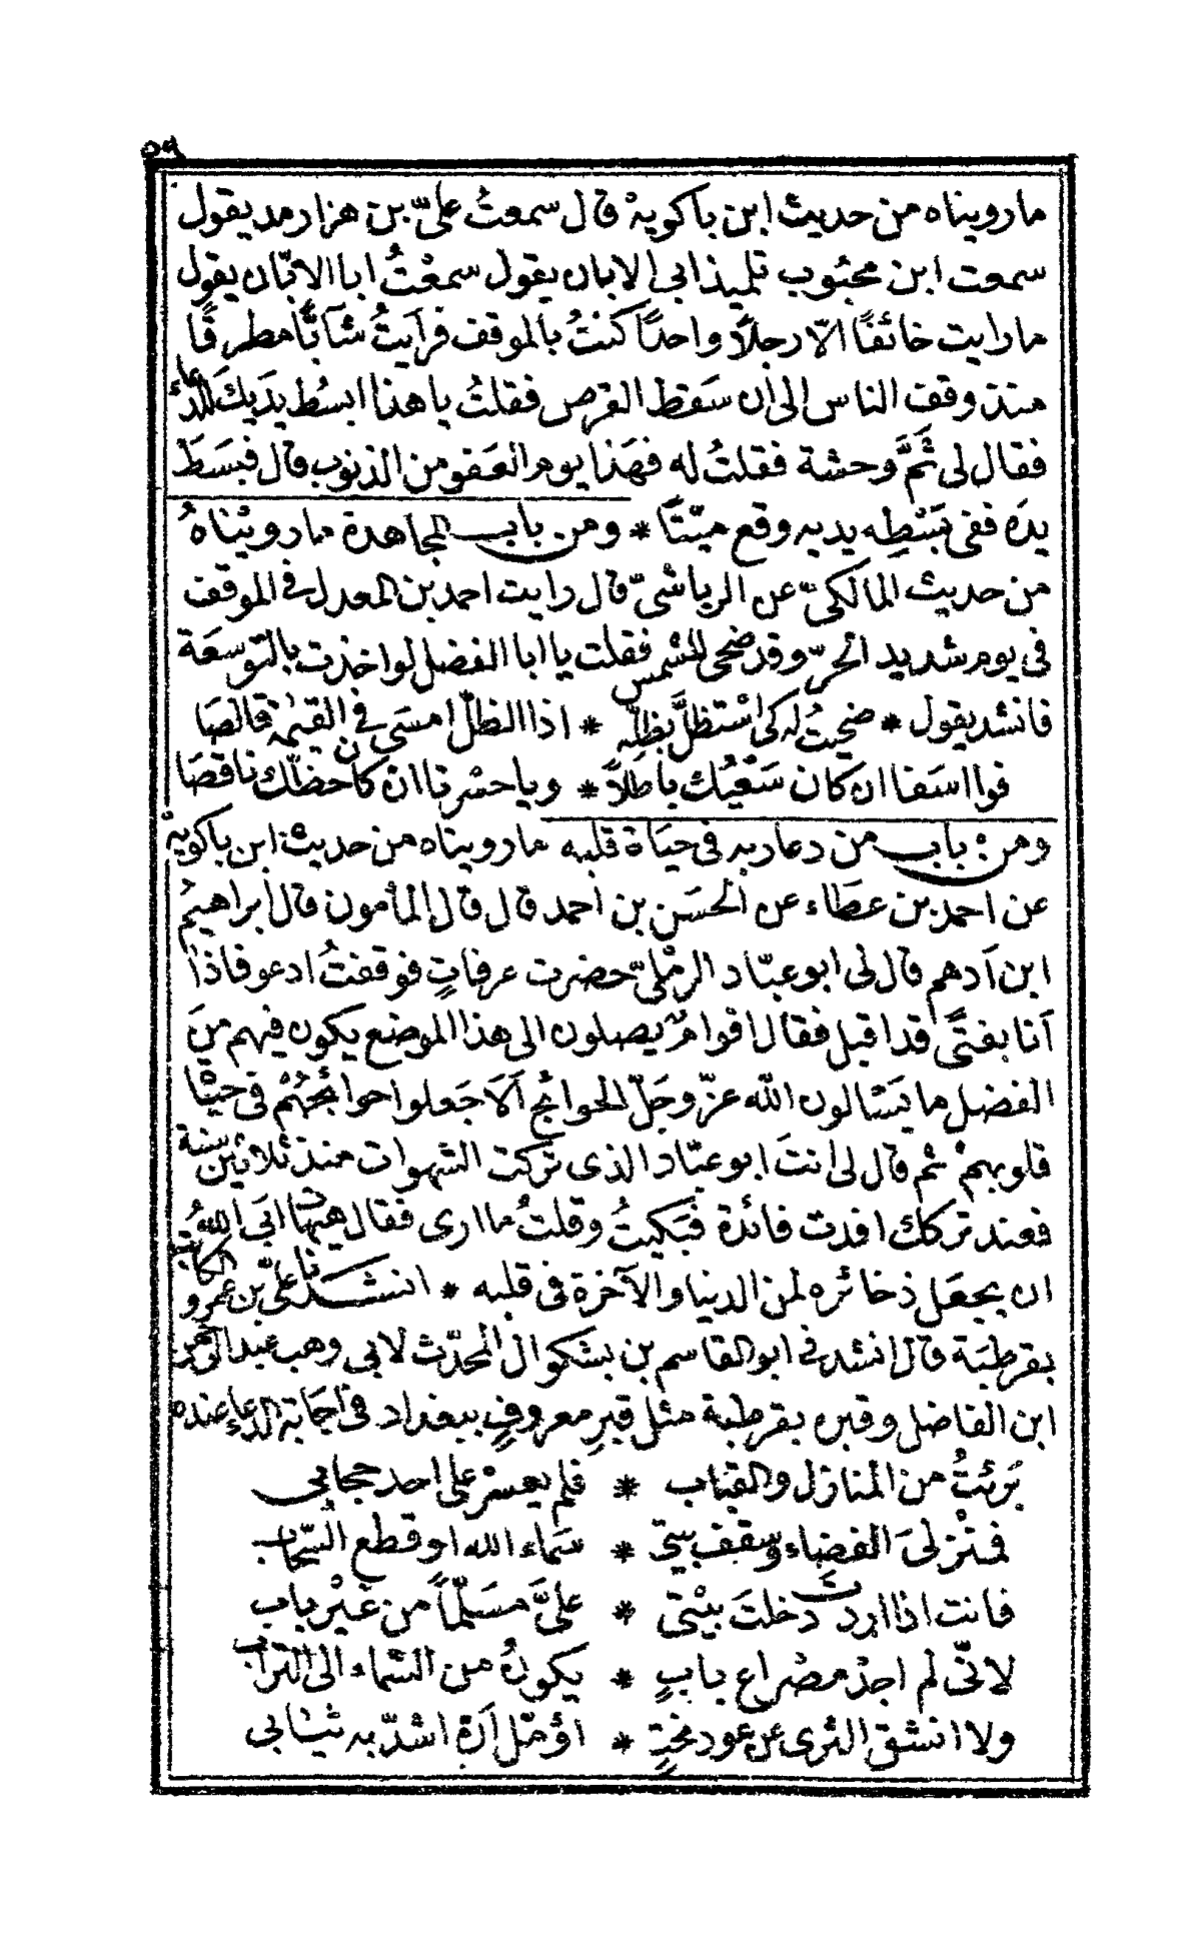 ٥٩
ما رويناه من حديث ابن باكويهْ قال سمعتُ علىّ بن هزارمد يقول
سمعت ابن محبُوب تلميذ ابى الابان يقول سمعْتُ ابا الابّان يقول
ما رايت خائفًا الّا رجلًا واحدًا كنتُ بالموقف فرأيتُ شآبًّا مطرقًا
منذ وقف الناس الى ان سَقط القرص فقلتُ يا هذا ابسُط يَدَيكَ للدّعاء
فقال لى ثَمَّ وحشة فقلتُ له فهَذا يوم العَفو من الذنوب قال فبَسَطَ
يدَه ففى بَسْطِه يديه وقع ميّتًا * ومن باب المجاهدة ما رويْناهُ
من حديث المالكىّ عن الرياشىّ قال رايت احمد بن المعدل فى الموقف
فى يوم شديد الحرّ وقد ضحى للشمس فقلت يا ابا الفضل لو اخذت بالتوسعَة
فانشد يقول * ضحيتُ له كى اسْتظلَّ بظلّه * اذا الظلّ امسَى فى القيٰمة قالصَا
فوا اسَفا ان كان سَعْيُك باطلًا * ويا حسْرتا ان كان حظّك ناقصَا
ومن باب من دعا ربه فى حيَاة قلبه ما رويناه من حديث ابن باكويهْ
عن احمد بن عطَاء عن الحسَن بن احمد قال قال المأمون قال ابراهيمُ
ابن اَدهم قال لى ابو عبّاد الرمْلىّ حضرت عرفاتٍ فوقفتُ ادعو فاذا
اَنا بفتًى قد اقبل فقال اقوامٌ يصلون الى هذا الموضع يكون فيهم منَ
الفضل ما يَسْالون الله عزّ وجَلّ الحوائج اَلَا جَعلوا حوائجَهُمْ فى حيَاة
قلوبهمْ ثم قال لى انتَ ابو عبّاد الذى تركت الشهوات منذ ثلاثين سنة
فعند تركك افدت فائدة فبَكيتُ وقلتُ ما ارى فقال هيهات ابَى اللهُ
ان يجعَل ذخائره لمن الدنيا والآخرة فى قلبه * انشدنا علىّ بن عمرو الكاتب
بقرطبَة قال انشدنى ابو القاسم بن بشكوال المحدّث لابى وهب عبد الرحمن
ابن الفاضل وقبره بقرطبة مثل قبرِ معروفٍ ببغداد فى اجَابة الدعاء عنده
بَرِئتُ من المنازل والقبَاب * فلم يعسرْ على احد حجابى
فمنْزلىَ الفضاء وسقف بيتى * سَماء الله او قطع السّحاب
فانت اذا اردت دخلتَ بيْتى * علىَّ مسَلّمًا من غيْر باب
لانّى لم اجدْ مصْراع بابٍ * يكونُ من السّماء الى التراب
ولا انشق الثرى عن عود تختٍ * اؤمّل اَن اشدّ به ثيَابى